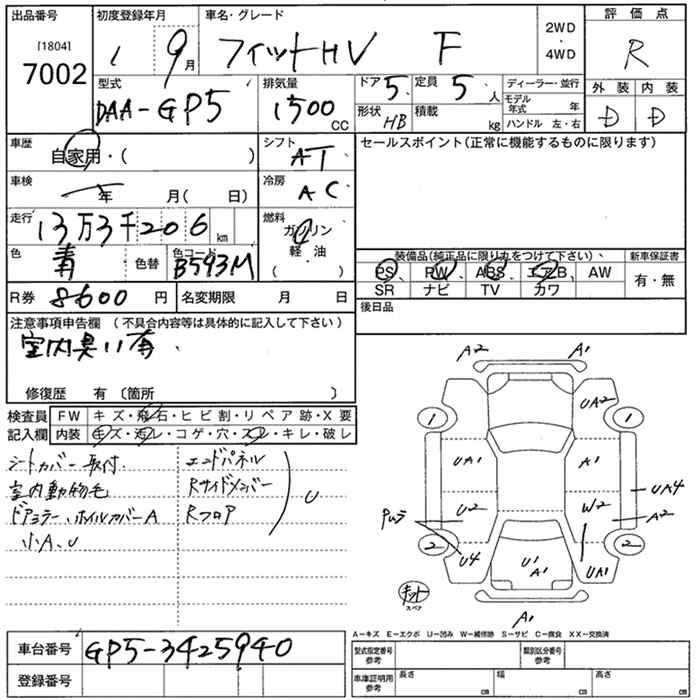 出品番号 初度登録年月 車名・グレード 評価点
[1804]
7002
1 9月 フィットHV F 2WD・4WD R
型式 排気量 ドア 5 定員 5人 ディーラー・並行 外装 内装
DAA-GP5 1500CC 形状 HB 積載 kg モデル年式 年 D D
ハンドル 左・右
車歴 自家用・( ) シフト AT セールスポイント(正常に機能するものに限ります)
車検 年 月( 日) 冷房 AC
走行 13万3千206km 燃料 ガソリン
軽油
( )
色 青 色替 色コード B593M 装備品(純正品に限り丸をつけて下さい)、 新車保証書
PS、 PW、 ABS、 エアB、 AW 有・無
SR ナビ TV カワ
R券 8600円 名変期限 月 日 後日品
注意事項申告欄 (不具合内容等は具体的に記入して下さい)
室内臭い有
修復歴 有 (箇所 )
検査員 FW キズ・飛石・ヒビ割・リペア跡・X要
記入欄 内装 キズ・汚レ・コゲ・穴・スレ・キレ・破レ
シートカバー取付 エンドパネル
室内動物毛 Rサイドメンバー U
ドアミラー、ホイルカバーA Rフロア
小A、U
A2 A1
UA2
1 1
UA1 A1
UA4
U2 W2 A2
2 2
U4 U1 A1 UA1
キット
スペア
A1
A−キズ E−エクボ U−凹み W−補修跡 S−サビ C−腐食 XX−交換済
車台番号 GP5-3425940 型式指定番号 参考 類別区分番号 参考
登録番号 車庫証明用 参考 長さ cm 幅 cm 高さ cm